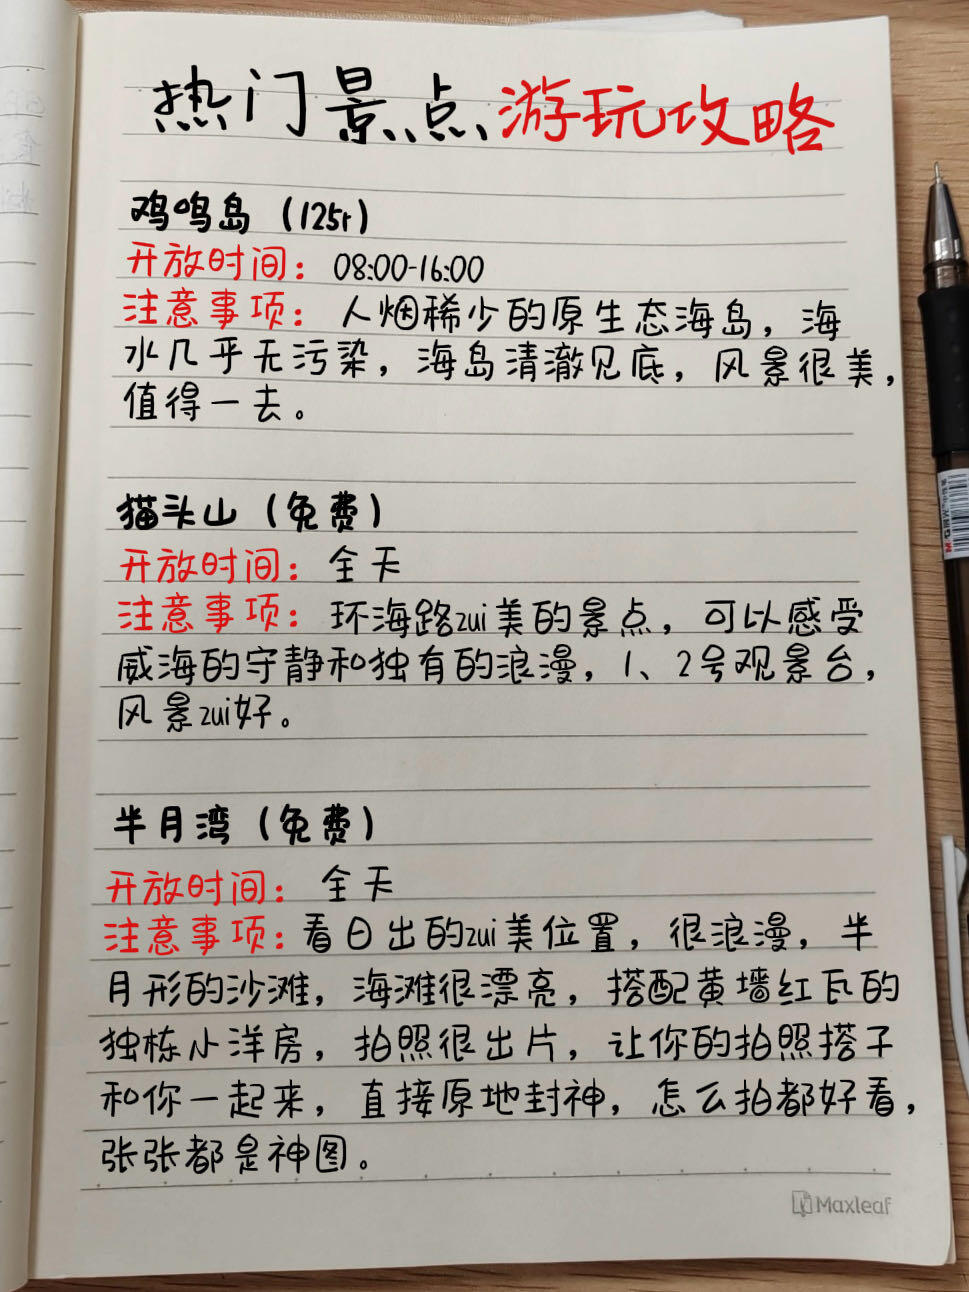 热门景点游玩攻略
鸡鸣岛（125r）
开放时间：08:00-16:00
注意事项：人烟稀少的原生态海岛，海
水几乎无污染，海岛清澈见底，风景很美，
值得一去。
猫头山（免费）
开放时间：全天
注意事项：环海路zui美的景点，可以感受
威海的宁静和独有的浪漫，1、2号观景台，
风景zui好。
半月湾（免费）
开放时间：全天
注意事项：看日出的zui美位置，很浪漫，半
月形的沙滩，海滩很漂亮，搭配黄墙红瓦的
独栋小洋房，拍照很出片，让你的拍照搭子
和你一起来，直接原地封神，怎么拍都好看，
张张都是神图。
Maxleaf